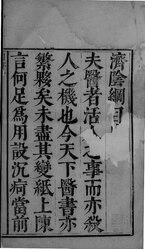 濟陰綱目
夫醫者活人之事而亦殺
人之機也今天下醫書亦
繁夥矣未盡其變紙上陳
言何足為用設沉疴當前